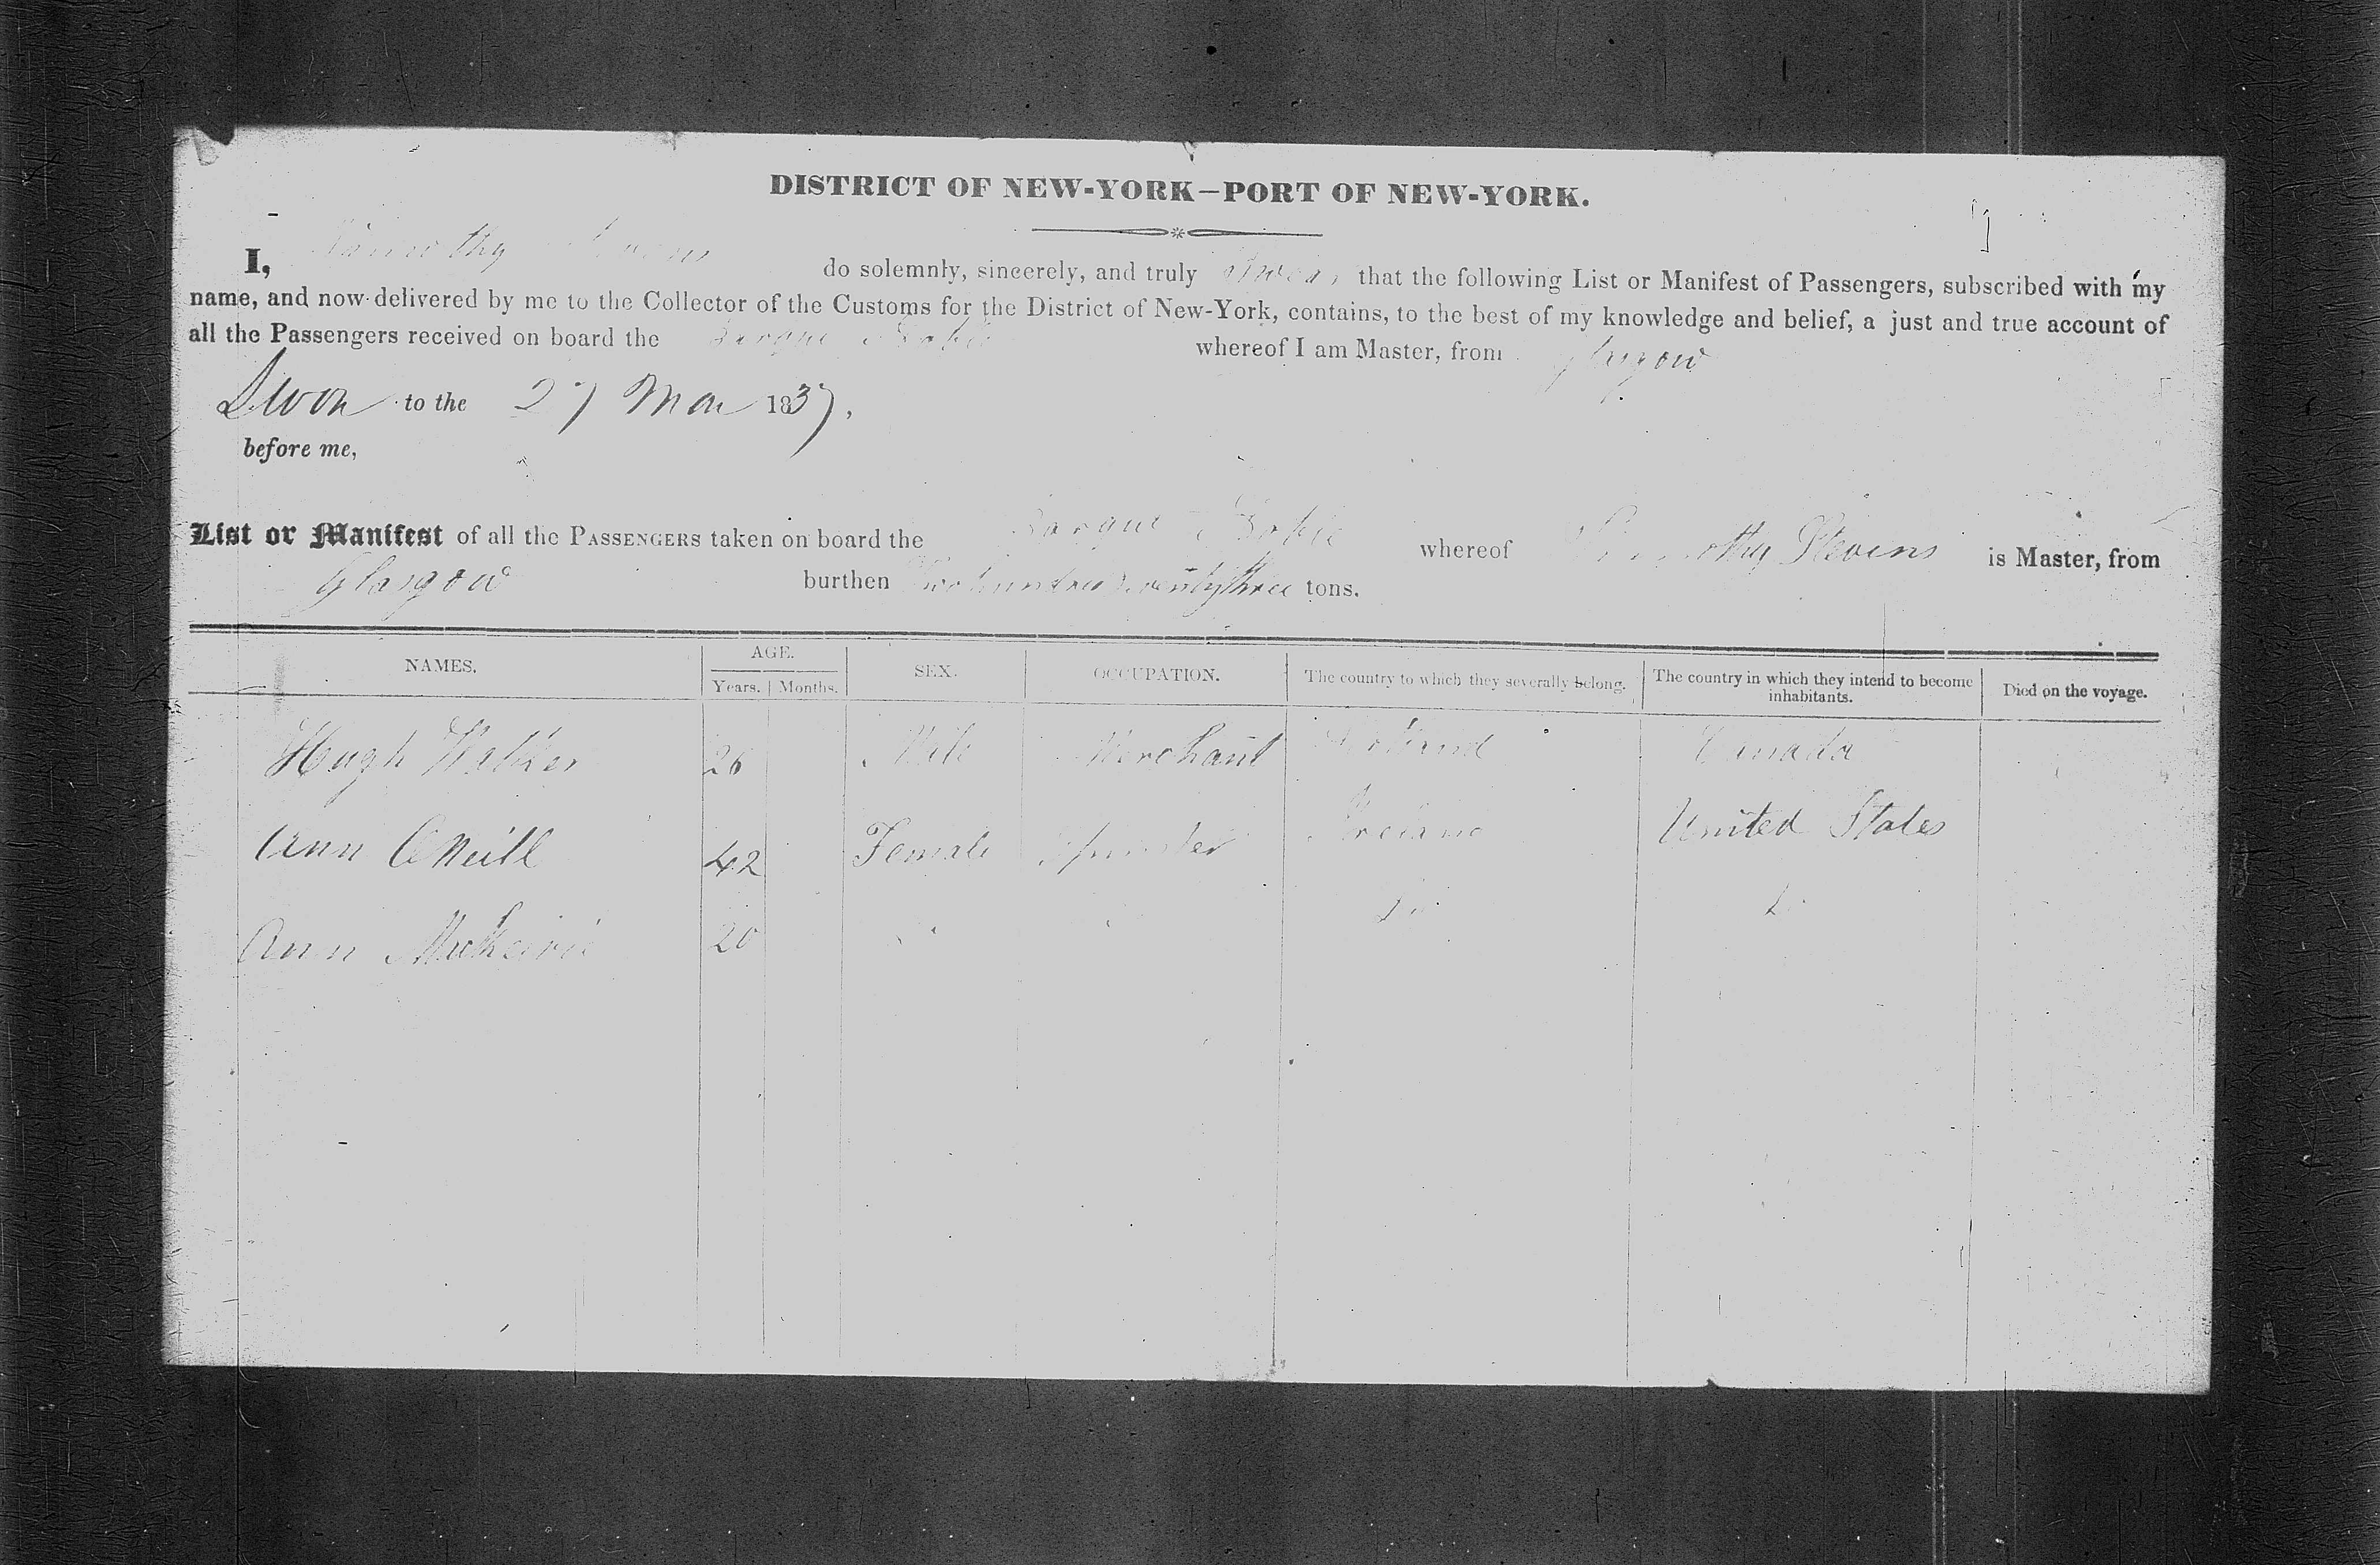 DISTRICT OF NEW-YORK—PORT OF NEW-YORK.
I, Timothy Stevens do solemnly, sincerely, and truly Swear that the following List or Manifest of Passengers, subscribed with my
name, and now delivered by me to the Collector of the Customs for the District of New-York, contains, to the best of my knowledge and belief, a just and true account of
all the Passengers received on board the Barque whereof I am Master, from Glasgow
Swon to the 27 Mar 1837,
before me,
List or Manifest of all the PASSENGERS taken on board the Barque whereof Timothy Stevens is Master, from
Glasgow burthen Two hundred three tons.
NAMES. AGE. SEX. OCCUPATION. The country to which they severally belong. The country in which they intend to become inhabitants. Died on the voyage.
Years. Months.
Hugh Walker 26 Male Merchant Scotland Canada
Ann O'Neill 42 Female Spinster Ireland United States
Ann 20 " " Do Do